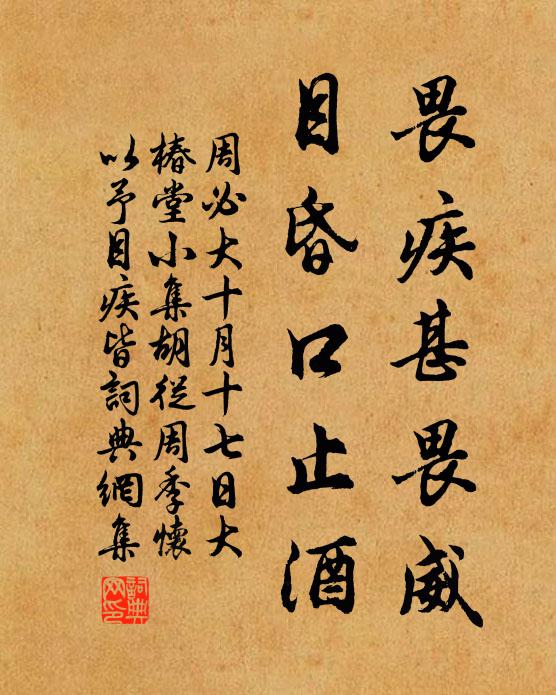 畏疾甚畏威
目昏口止酒
周必大十月十七日大
椿堂小集胡從周季懷
以予目疾皆詞典網集
詞典网印